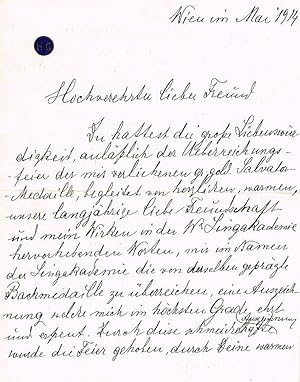 Wien im Mai 1914
Hochverehrter lieber Freund
Du hattest die große Liebenswür=
digkeit, anläßlich der Ueberreichungs=
feier der mir verliehenen gr. gold. Salvator=
Medaille, begleitet von herzlichen, warmen,
unsere langjährige liebe Freundschaft
und mein Wirken in der Wr Singakademie
hervorhebenden Worten, mir im Namen
der Singakademie die von derselben geprägte
Bachmedaille zu überreichen, eine Auszeich=
nung, welche mich im höchsten Grade ehrt
und erfreut. Durch diese schmeichelhafte
wurde die Feier gehoben, durch Deine warmen